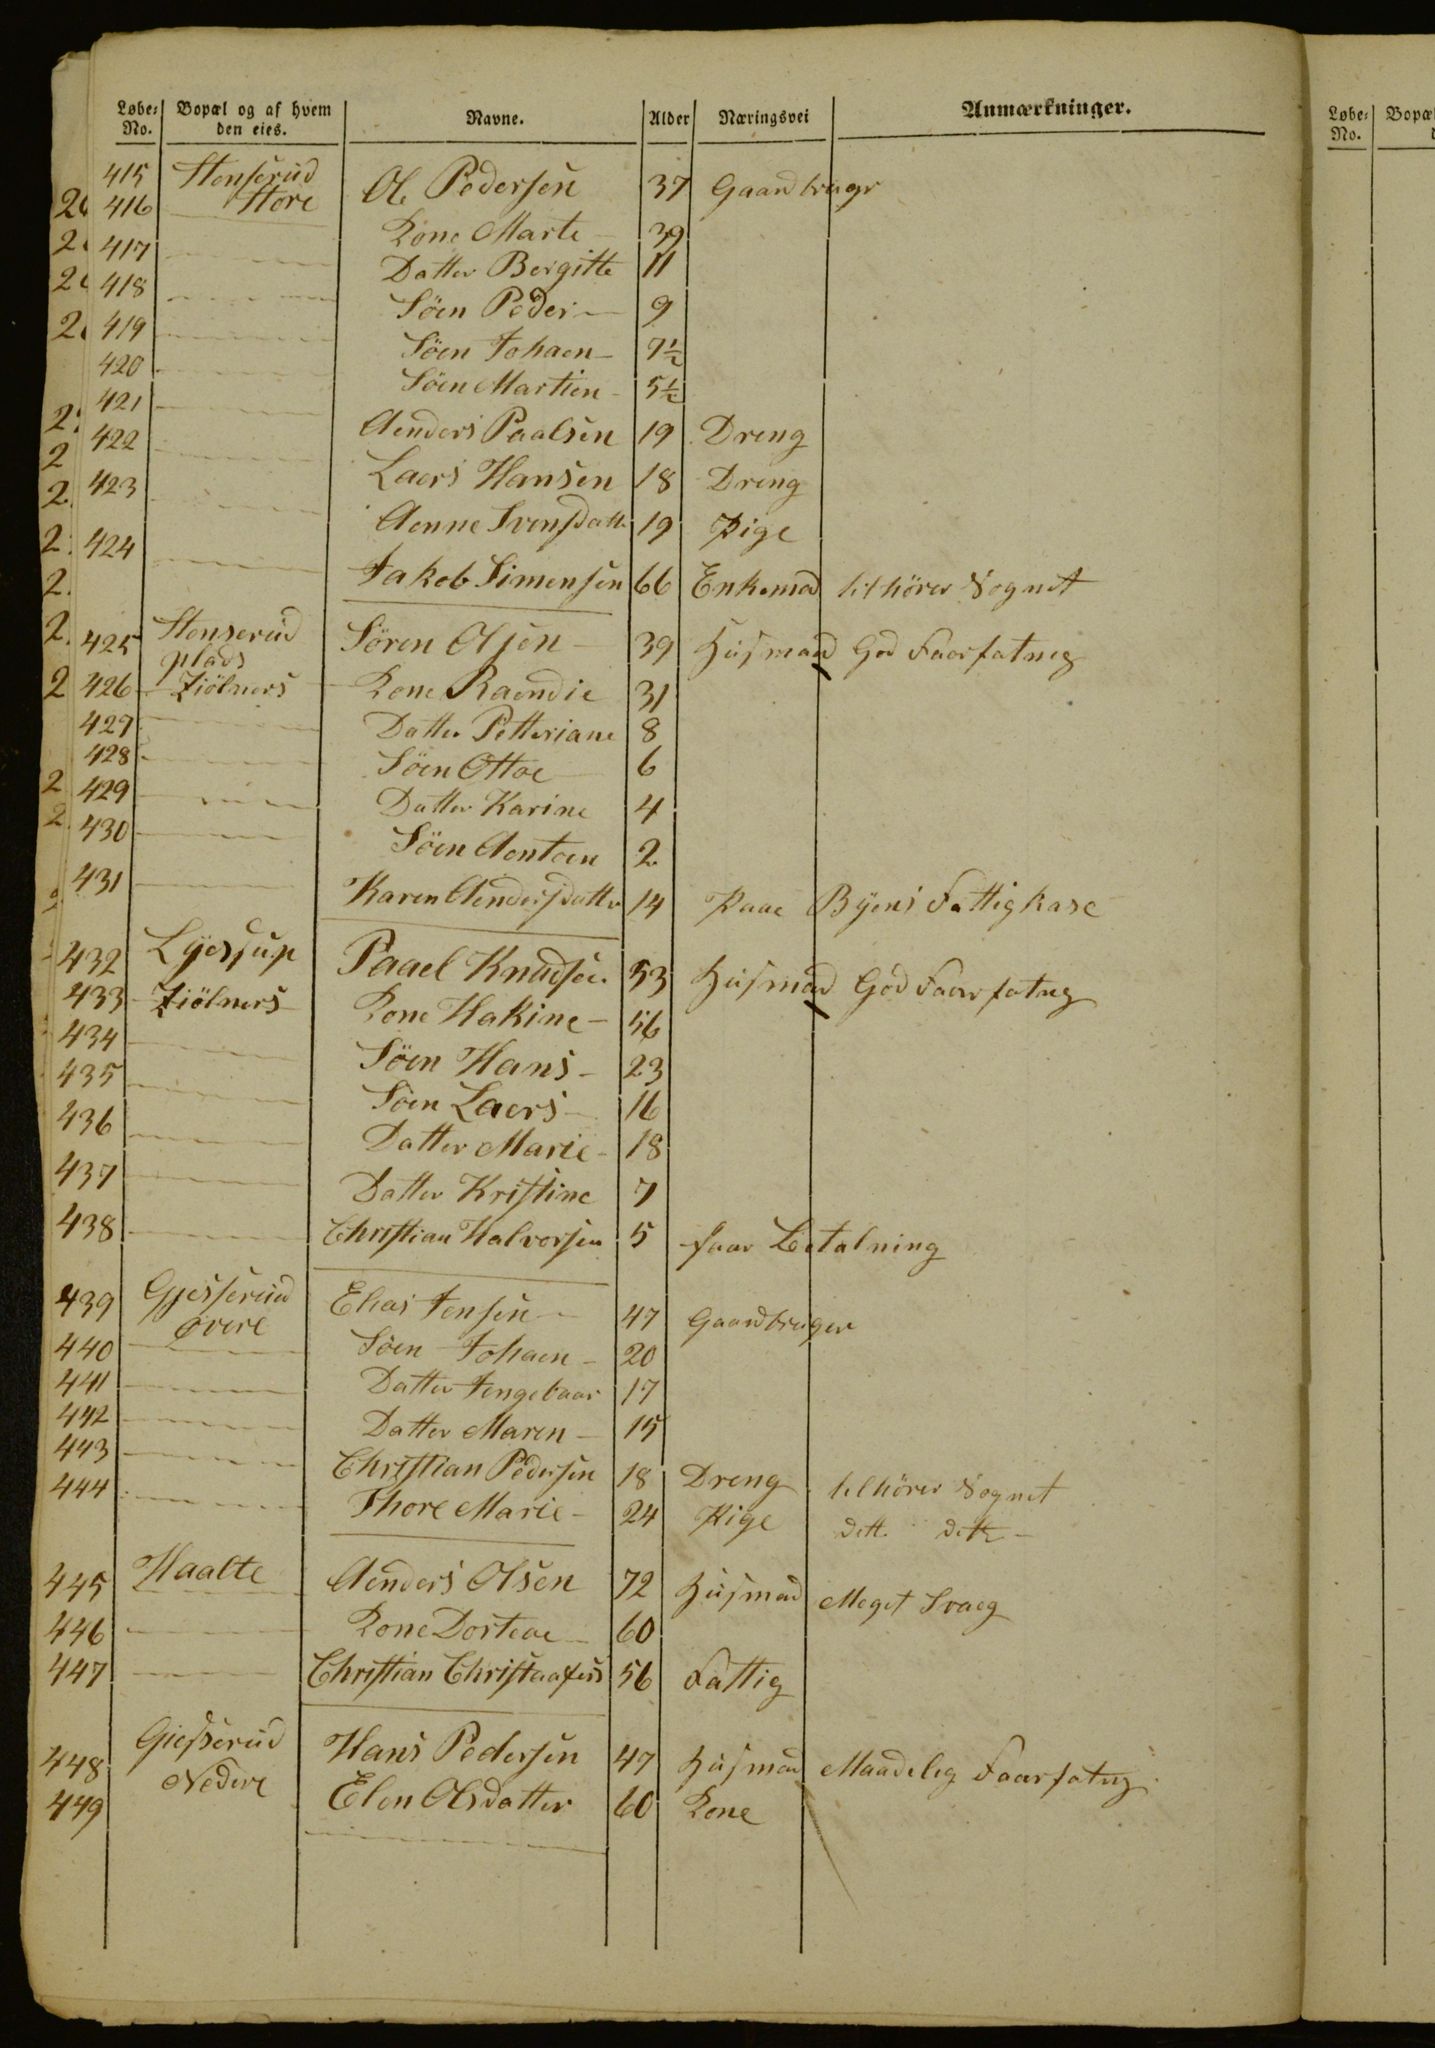 Løbe-No. Bopæl og af hvem den eies. Navne. Alder Næringsvei Anmærkninger.
415 Stenserud Ole Pedersen 37 Gaardbruger
416 Store Kone Marte 39
417 Datter Bergitte 11
418 Söen Peder 9
419 Söen Johaen 7½
420 Söen Martien 5½
421 Aenders Paalsen 19 Dreng
422 Laers Hansen 18 Dreng
423 Aenne Svensdatt 19 Pige
424 Jakob Simensen 66 Enkemad tilhörer Sognet
425 Stenserud plads Sören Olsen 39 Husmand God Faarfatneg
426 Ziölners Kone Raendie 31
427 Datter Petteriane 8
428 Söen Ottoe 6
429 Datter Karine 4
430 Söen Aentoen 2
431 Karen Aendersdatter 14 Paae Byens Fattigkase
432 Paael Knudsen 53 Husmand God Faarfatneg
433 Ziölners Kone Hakine 56
434 Söen Hans 23
435 Söen Laers 16
436 Datter Marie 18
437 Datter Kristine 7
438 Christian Halvorsen 5 faar Betalning
439 Gjesserud Elias Jensen 47 Gaardbruger
440 övere Söen Johaen 20
441 Datter Jengebaar 17
442 Datter Maren 15
443 Christian Pedersen 18 Dreng tilhörer Sognet
444 Thore Marie 24 Pige dett. dett
445 Haalte Aenders Olsen 72 Husmad Meget Svaeg
446 Kone Dorteae 60
447 Christian Christaafers 56 Fattig
448 Giesserud Hans Pedersen 47 Husmad Maadelig Faarfatneg
449 Nedere Elen Olsdatter 60 Kone
Løbe-No. Bopæl